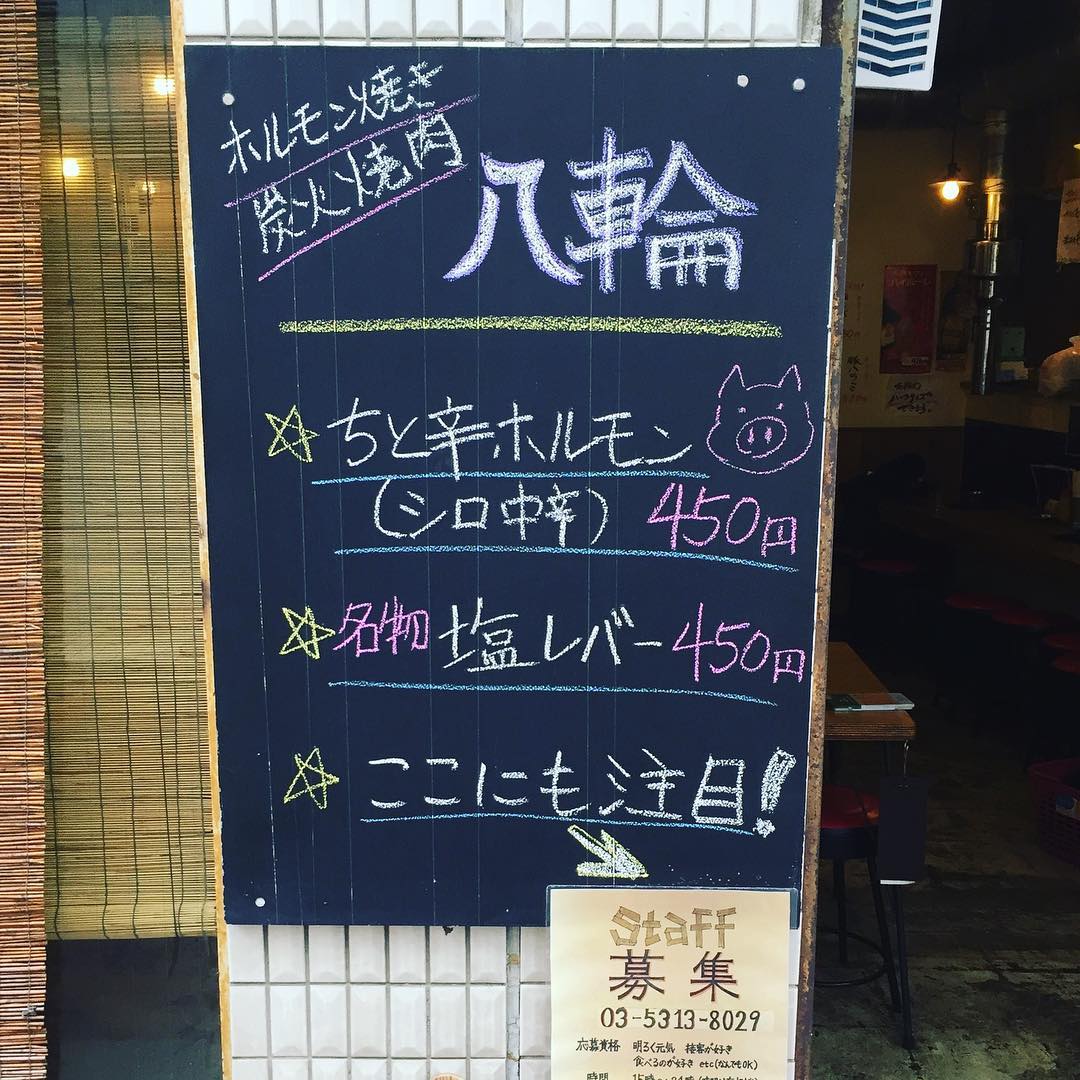 ホルモン焼き
炭火焼肉
八輪
☆ ちと辛ホルモン
(シロ中辛) 450円
☆ 名物 塩レバー 450円
☆ ここにも注目!
Staff
募集
03-5313-8029
応募資格 明るく元気 接客が好き
食べるのが好き etc(なんでもOK)
時間